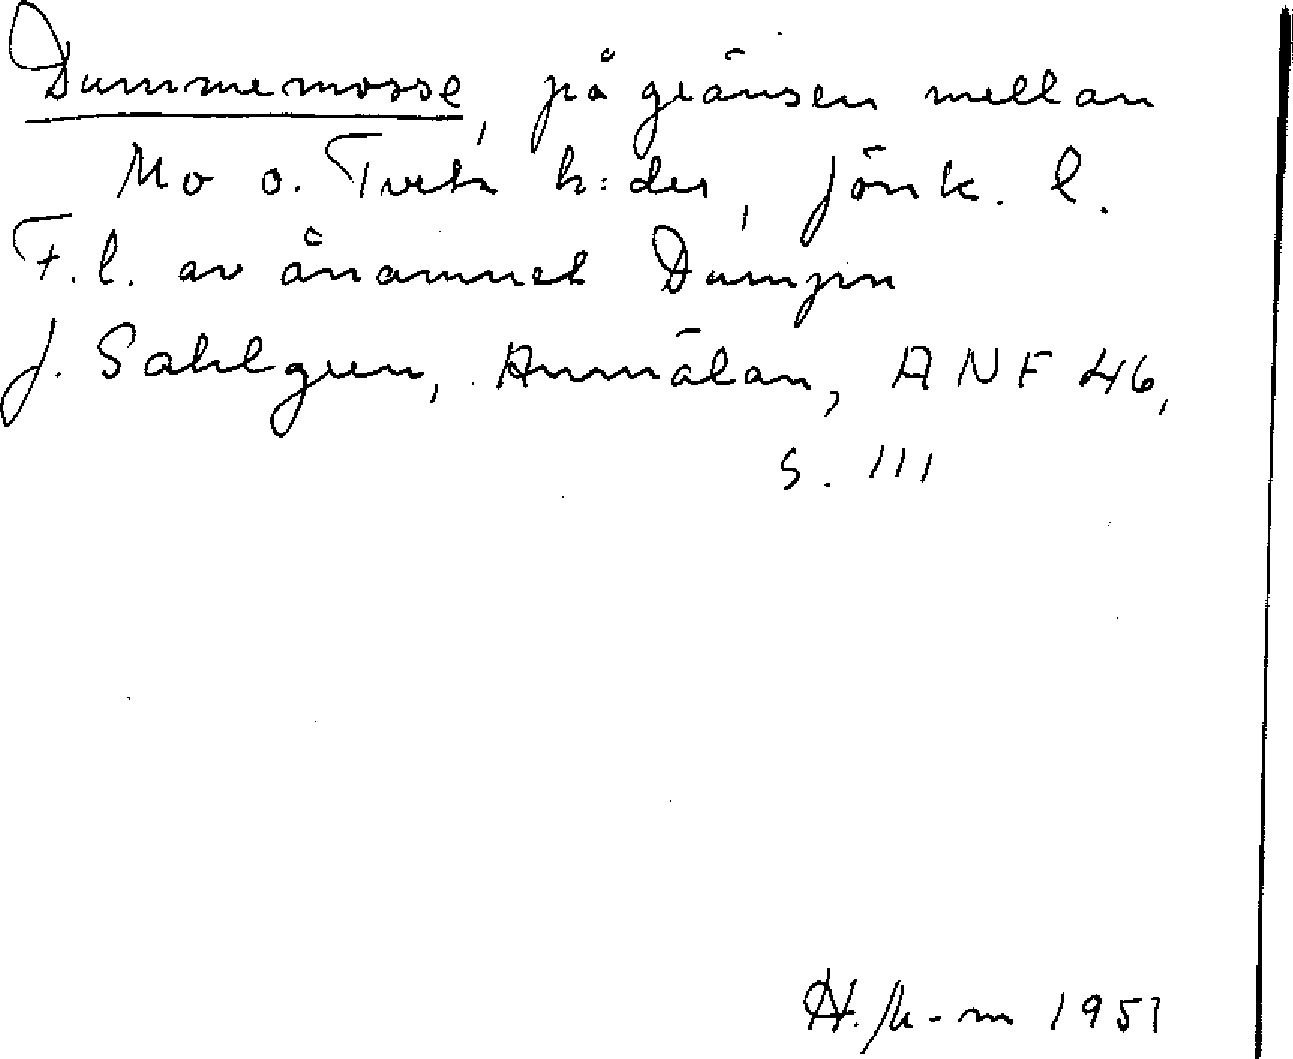 Dummemosse, på gränsen mellan
Mo o. Tveta h:der, Jönk. l.
F.l. av ånamnet Dumpn
J. Sahlgren, Anmälan, ANF 46,
s. 111
1951